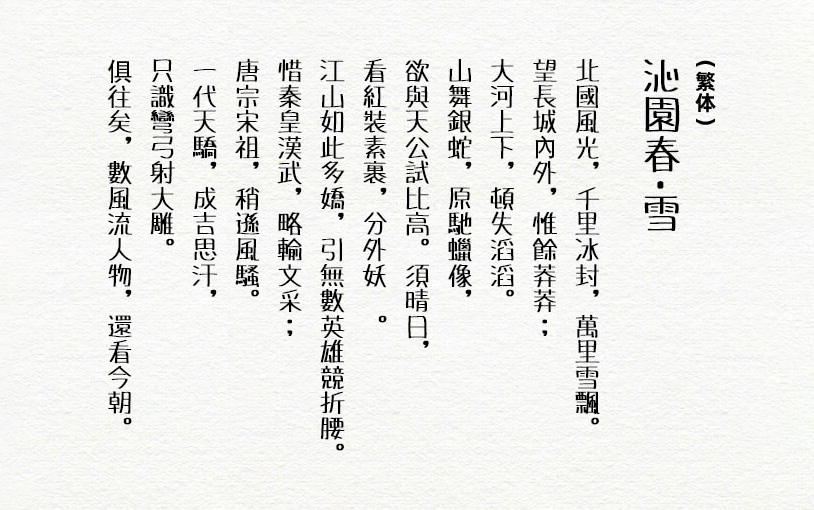 (繁体)
沁園春·雪
北國風光，千里冰封，萬里雪飄。
望長城內外，惟餘莽莽；
大河上下，頓失滔滔。
山舞銀蛇，原馳蠟像，
欲與天公試比高。須晴日，
看紅裝素裹，分外妖　。
江山如此多嬌，引無數英雄競折腰。
惜秦皇漢武，略輸文采；
唐宗宋祖，稍遜風騷。
一代天驕，成吉思汗，
只識彎弓射大雕。
俱往矣，數風流人物，還看今朝。